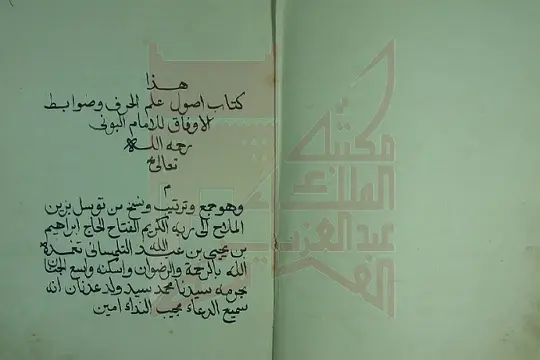 هذا
كتاب اصول علم الحرف وضوابط
الاوفاق للامام البوني
رحمه الله
تعالى
م
وهو جمع وترتيب ونسخ من توسل بزين
الملاح الى ربه الكريم الفتاح الحاج ابراهيم
بن يحيى بن عبد الله التلمساني تغمده
الله بالرحمة والرضوان واسكنه وسيع الجنان
بحرمه سيدنا محمد سيد ولد عدنان انه
سميع الدعاء مجيب النداء امين
مكتبة
الملك
عبدالعزيز